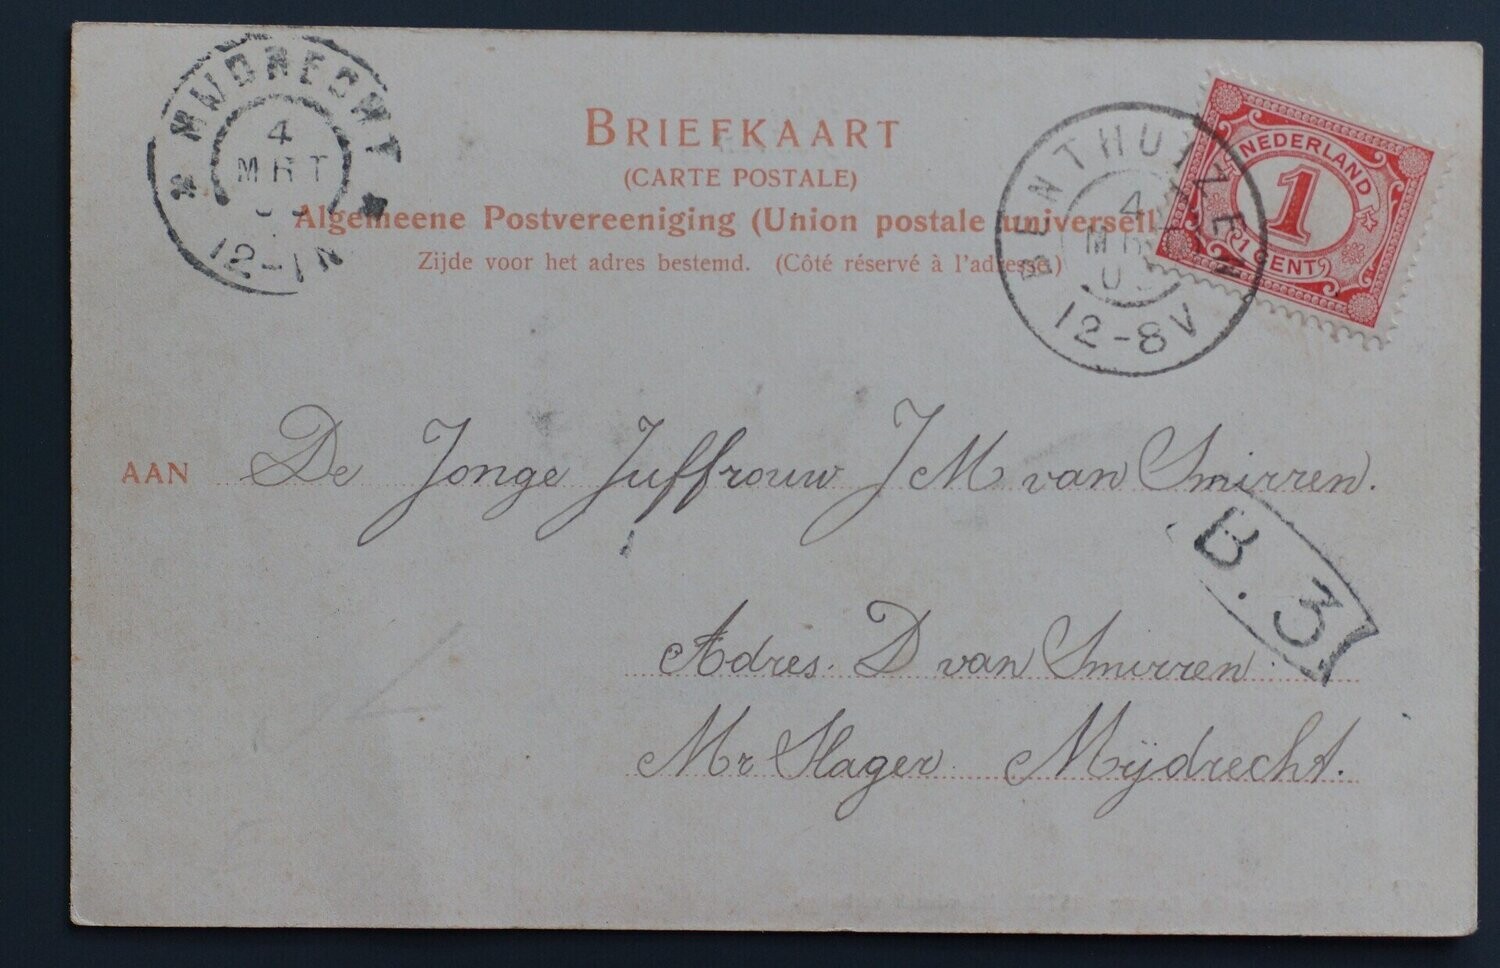 MIJDRECHT
4
MRT
12-1N
BRIEFKAART
(CARTE POSTALE)
Algemeene Postvereeniging (Union postale universelle)
Zijde voor het adres bestemd. (Côté réservé à l'adresse.)
BENTHUIZEN
4
MRT
12-8V
NEDERLAND
1
1 CENT
AAN De Jonge Juffrouw J M van Smirren.
B.3
Adres. D van Smirren
Mr Slager Mijdrecht.